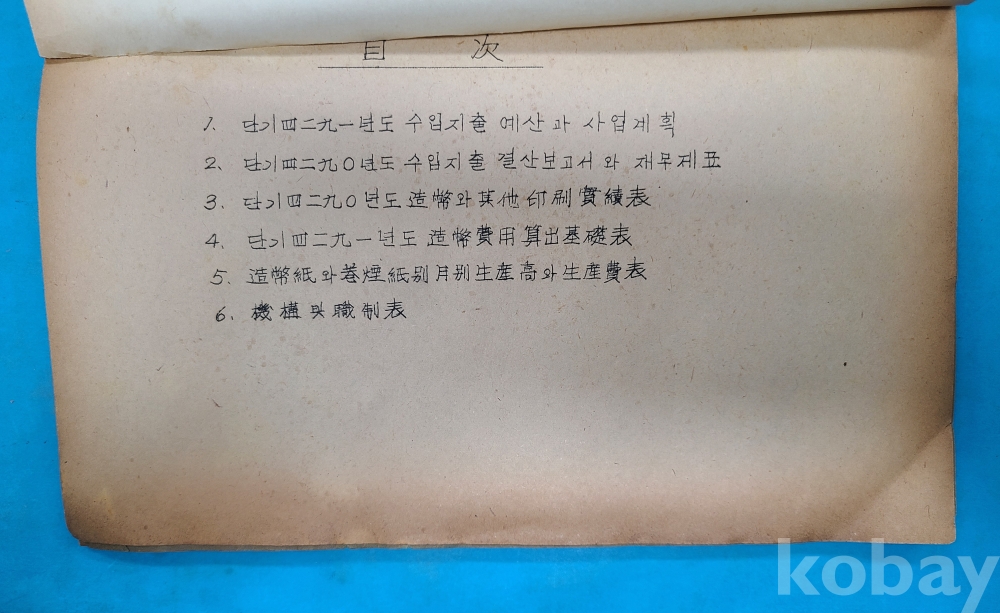 目 次
1. 단기四二九一년도 수입지출 예산과 사업계획
2. 단기四二九0년도 수입지출 결산보고서와 재무제표
3. 단기四二九0년도 造幣와 其他 印刷 實績表
4. 단기四二九一년도 造幣費用算出基礎表
5. 造幣紙와 卷煙紙別 月別 生産高와 生産費表
6. 機構및 職制表
kobay